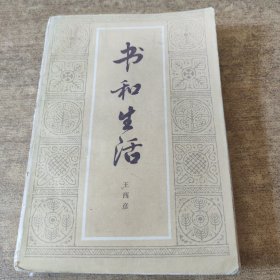 书和生活
王西彦